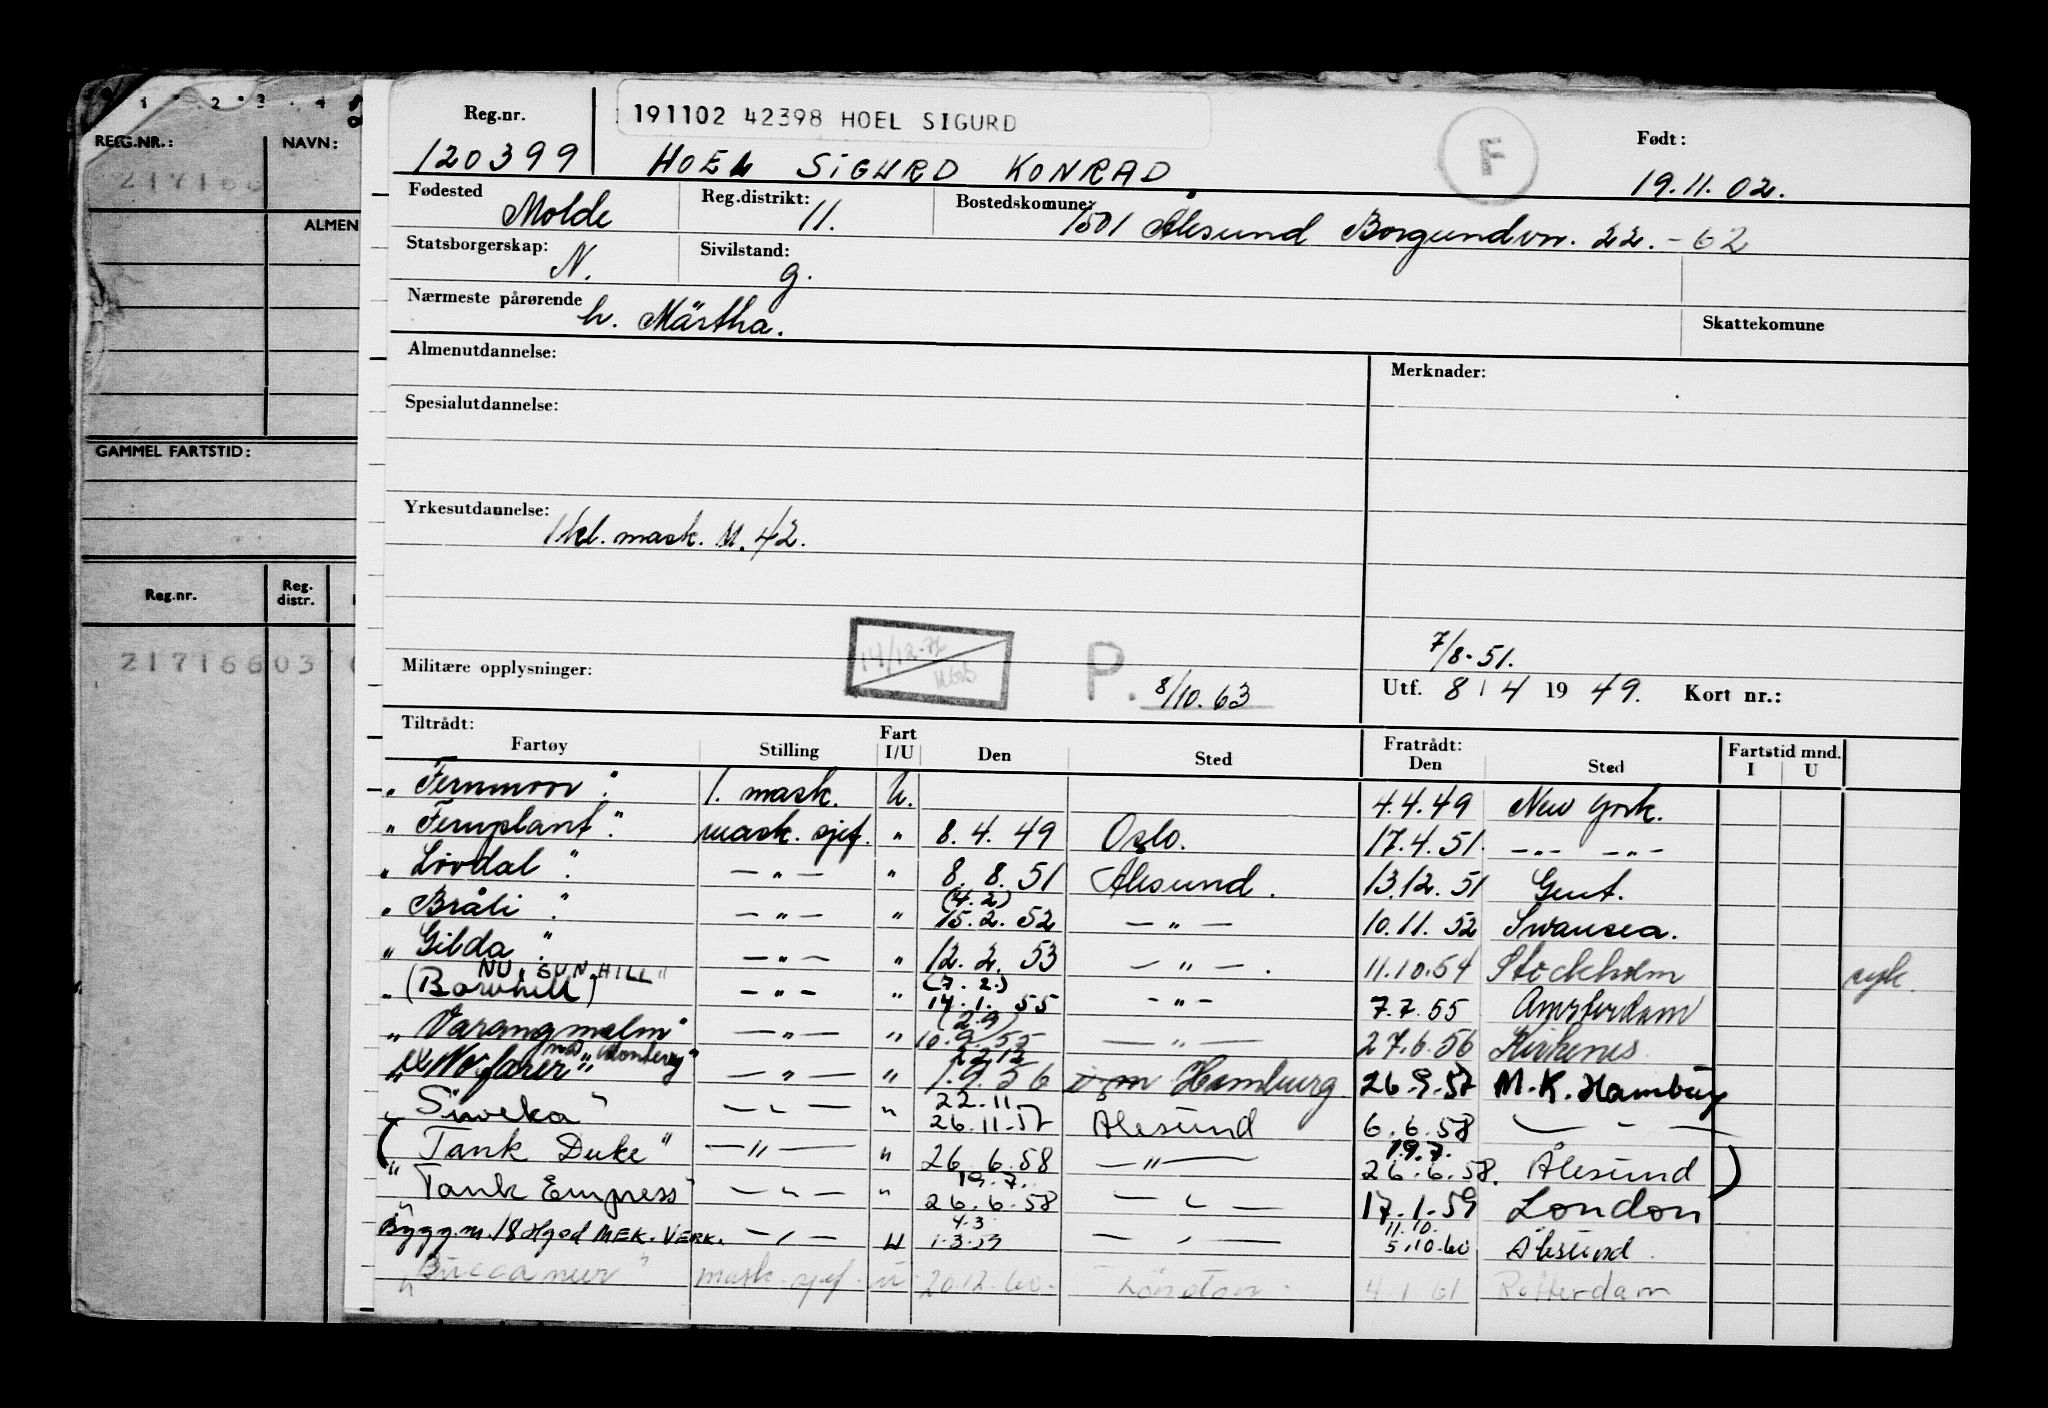 1 2 3 4
REG.NR.: NAVN:
217166
ALMEN
GAMMEL FARTSTID:
Reg.nr. Reg. distr.
21716603
Reg.nr. 191102 42398 HOEL SIGURD F Født:
120399 HOEL SIGURD KONRAD 19.11.02.
Fødested Molde Reg.distrikt: 11. Bostedskomune: 1501 Ålesund Borgundvn. 22. - 62
Statsborgerskap: N. Sivilstand: g.
Nærmeste pårørende h. Märtha. Skattekomune
Almenutdannelse: Merknader:
Spesialutdannelse:
Yrkesutdannelse: 1 kl. mask. M. 42.
7/8-51.
Militære opplysninger: 14/12-72 P. 8/10.63 Utf. 8/4 19 49. Kort nr.:
Tiltrådt: Fratrådt: Fartstid mnd.
Fartøy Stilling Fart I/U Den Sted Den Sted I U
"Fernmoor". 1. mask. U. 4.4.49 New York.
"Fernplant". mask. sjef. " 8.4.49 Oslo. 17.4.51. -"- -"-
"Lovdal". -"- " 8.8.51 Ålesund. 13.12.51 Gent.
"Bråli". -"- " (4.2) 15.2.52 -"- 10.11.52 Swansea.
"Gilda". -"- " 12.2.53 -"-. 11.10.54 Stockholm syk.
NU "SUNHILL"
"(Bornhill) -"- " (7.2.) 14.1.55 -"- 7.7.55 Amsterdam
"Varangmalm" -"- " (2.9) 10.9.55 -"- 27.6.56 Kirkenes
-"- " 22.12 1.9.56 Hamburg 26.9.57 M.K. Hamburg
"Siveka" -"- " 22.11 26.11.57 Ålesund 6.6.58 -"-
("Tank Duke" -"- " 26.6.58 -"- 19.7. 26.6.58. Ålesund)
"Tank Empress" -"- " 19.7. 26.6.58 -"- 17.1.59 London
Bygg.n. 18 Hjed MEK. VERK. -"- U 4.3 1.3.59 -"- 11.10. 5.10.60 Ålesund.
"Buccaneer" mask. sjef. U 20.12.60. London. 4.1.61 Rotterdam